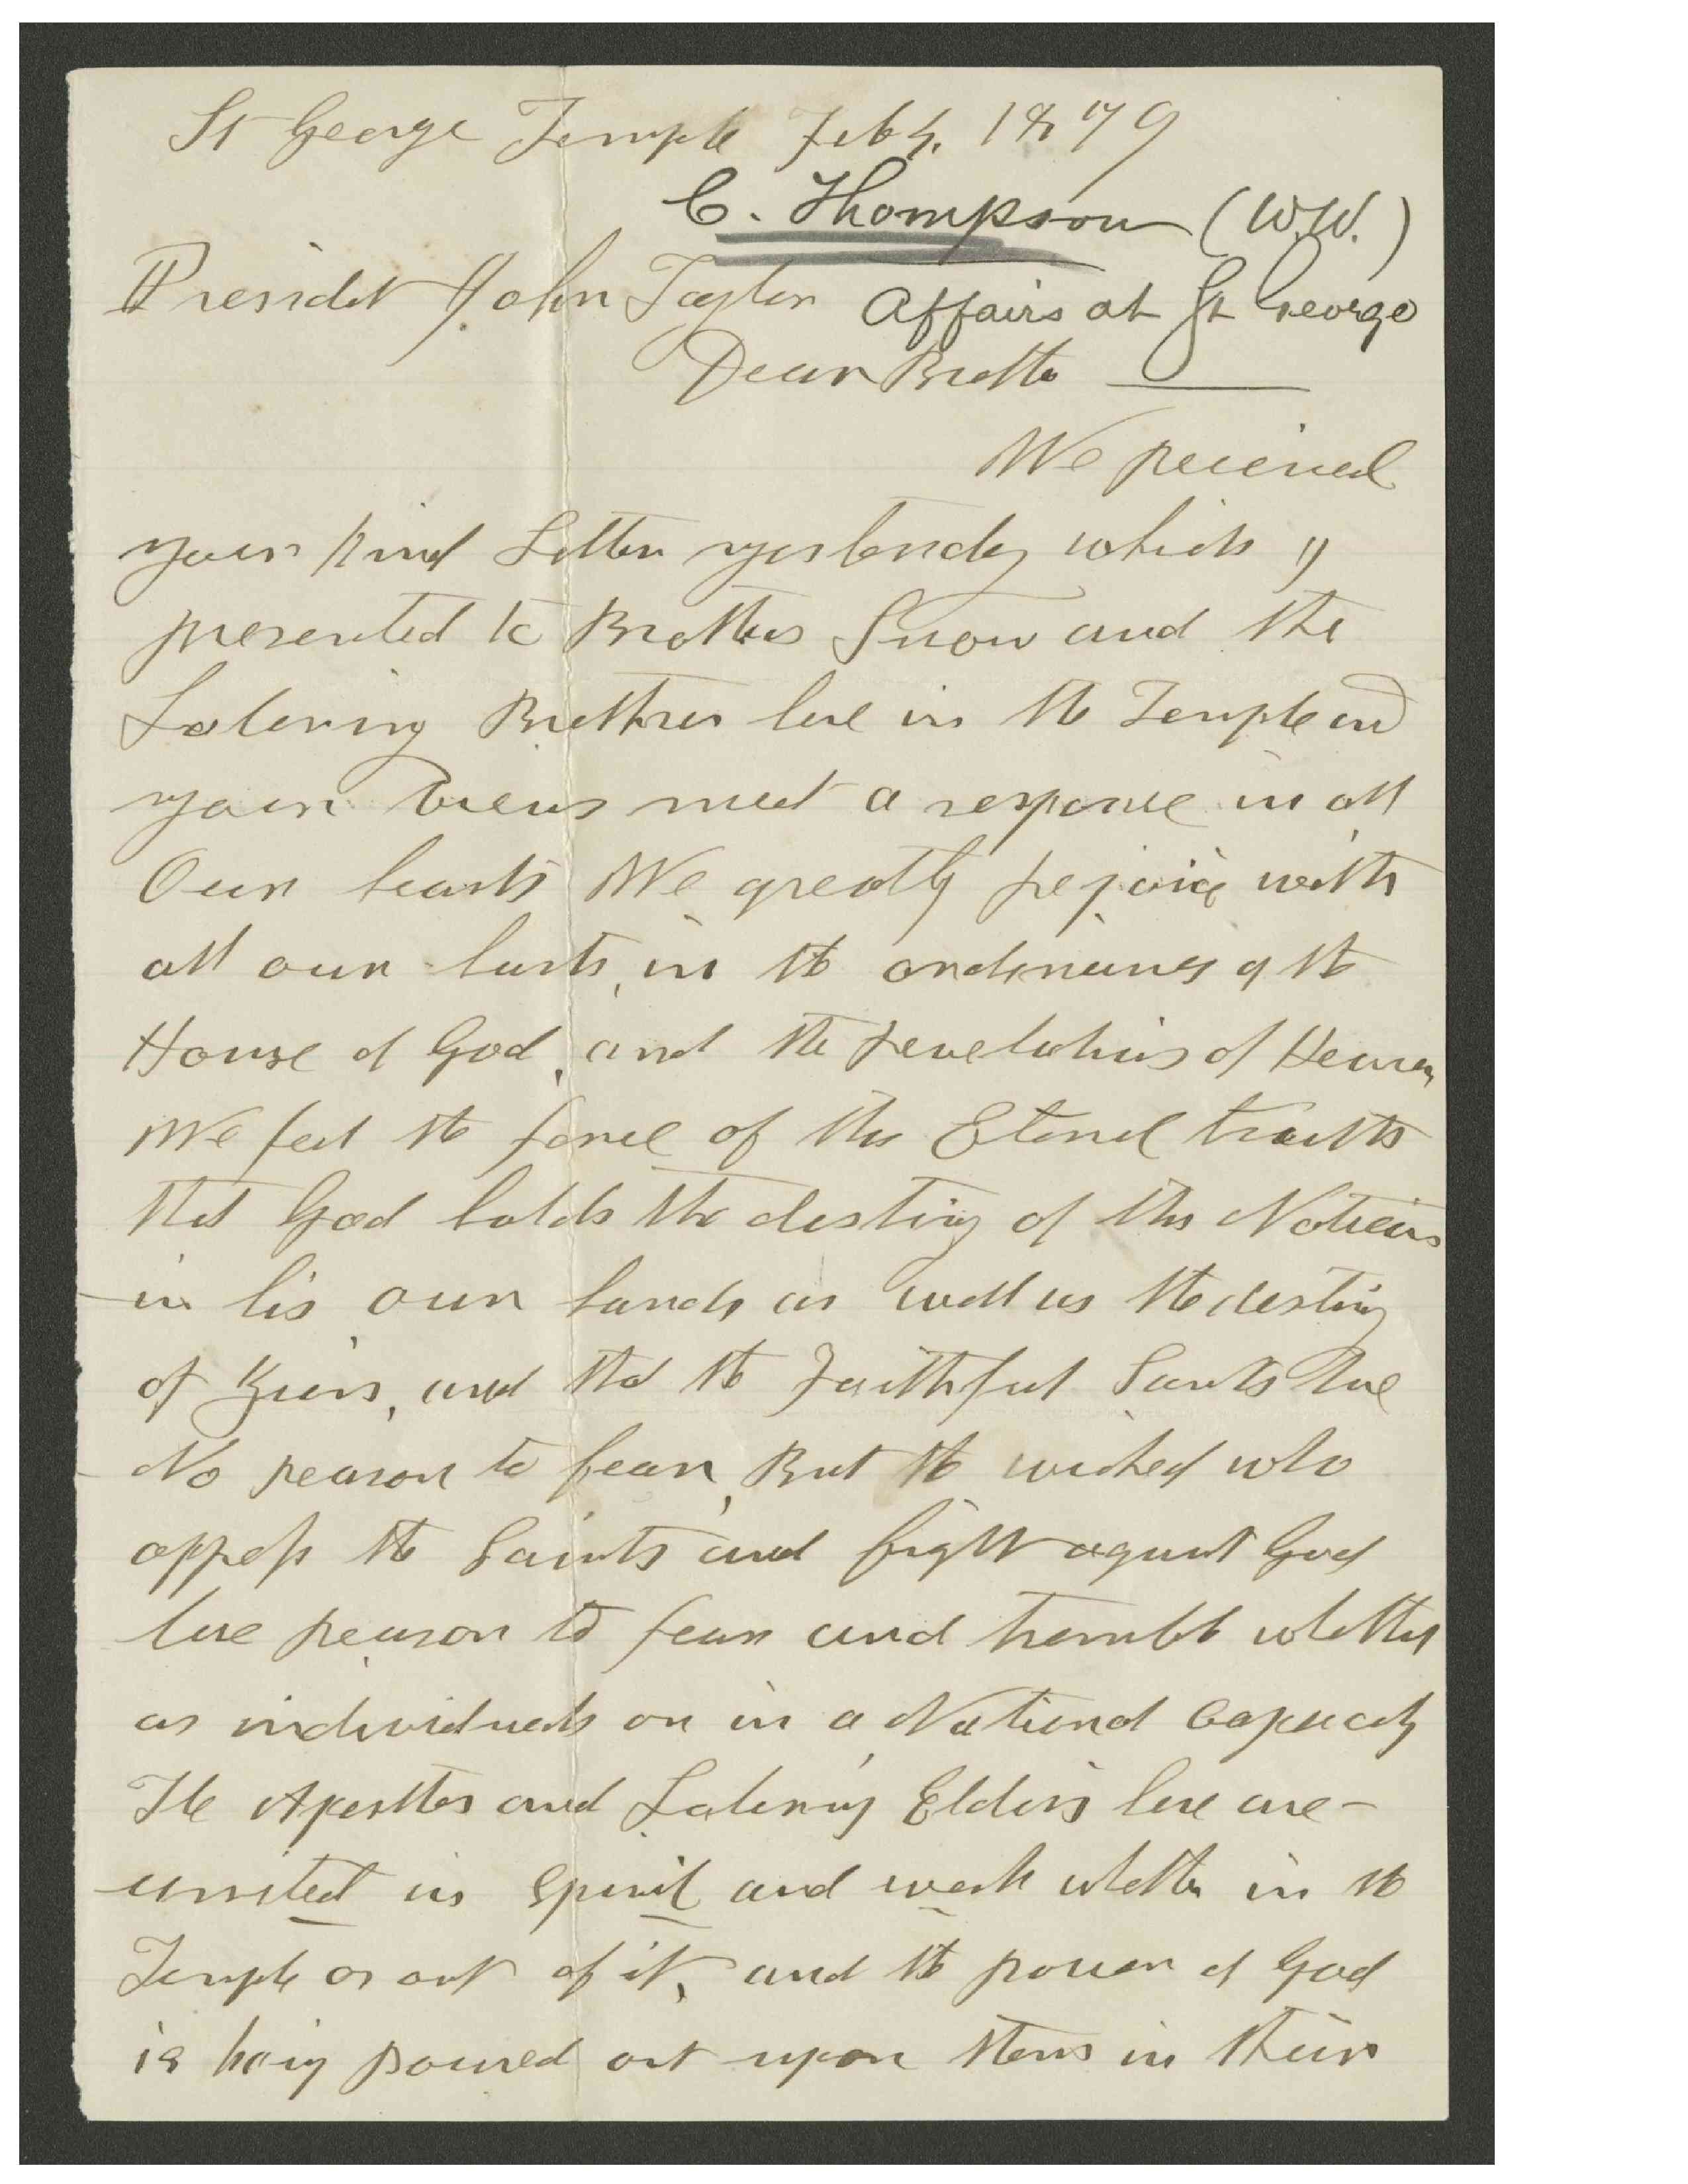 St George Temple Feb 4. 1879
C. Thompson (W.W.)
President John Taylor Affairs at St George
Dear Brother
We received
your kind Letter yesterday which I
presented to Brother Snow and the
Laboring Brethren here in the Temple and
your views meet a response in all
Our hearts We greatly rejoice with
all our hearts, in the ordinances of the
House of God, and the revelations of Heaven,
We feel the force of the Eternal truths
that God holds the destiny of the Nations
in his own hands as well as the destiny
of Zion, and that the Faithful Saints have
No reason to fear, But the wicked who
oppose the Saints and fight against God
have reason to fear and tremble whether
as individuals or in a National Capacity
The Apostles and Laboring Elders here are
united in Spirit and work whether in the
Temple or out of it, and the power of God
is being poured out upon them in their